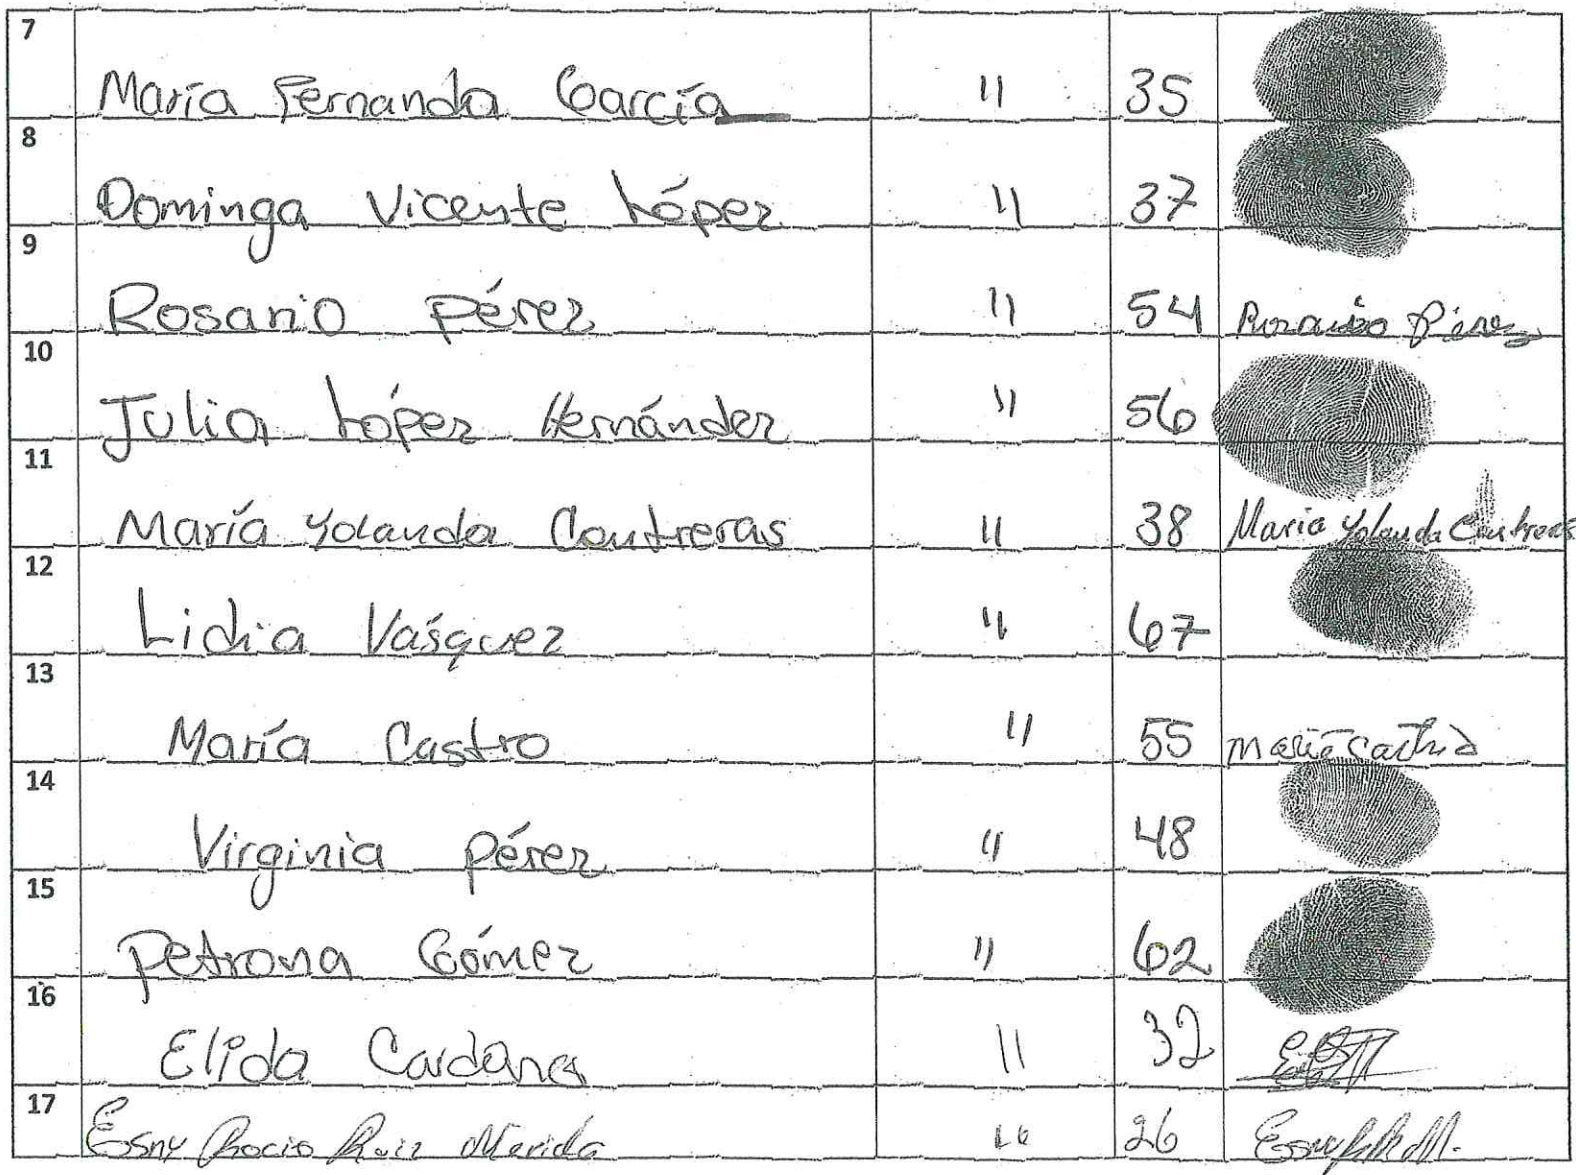 7 María Fernanda García " 35
8 Dominga Vicente López " 37
9 Rosario Pérez " 54 Rosario Pérez
10 Julia López Hernández " 56
11 María Yolanda Contreras " 38 Maria Yolanda Contreras
12 Lidia Vásquez " 67
13 María Castro " 55 Maria Castro
14 Virginia Pérez " 48
15 Petrona Gómez " 62
16 Elida Cardona " 32
17 Esny Rocio Ruiz Merida " 26